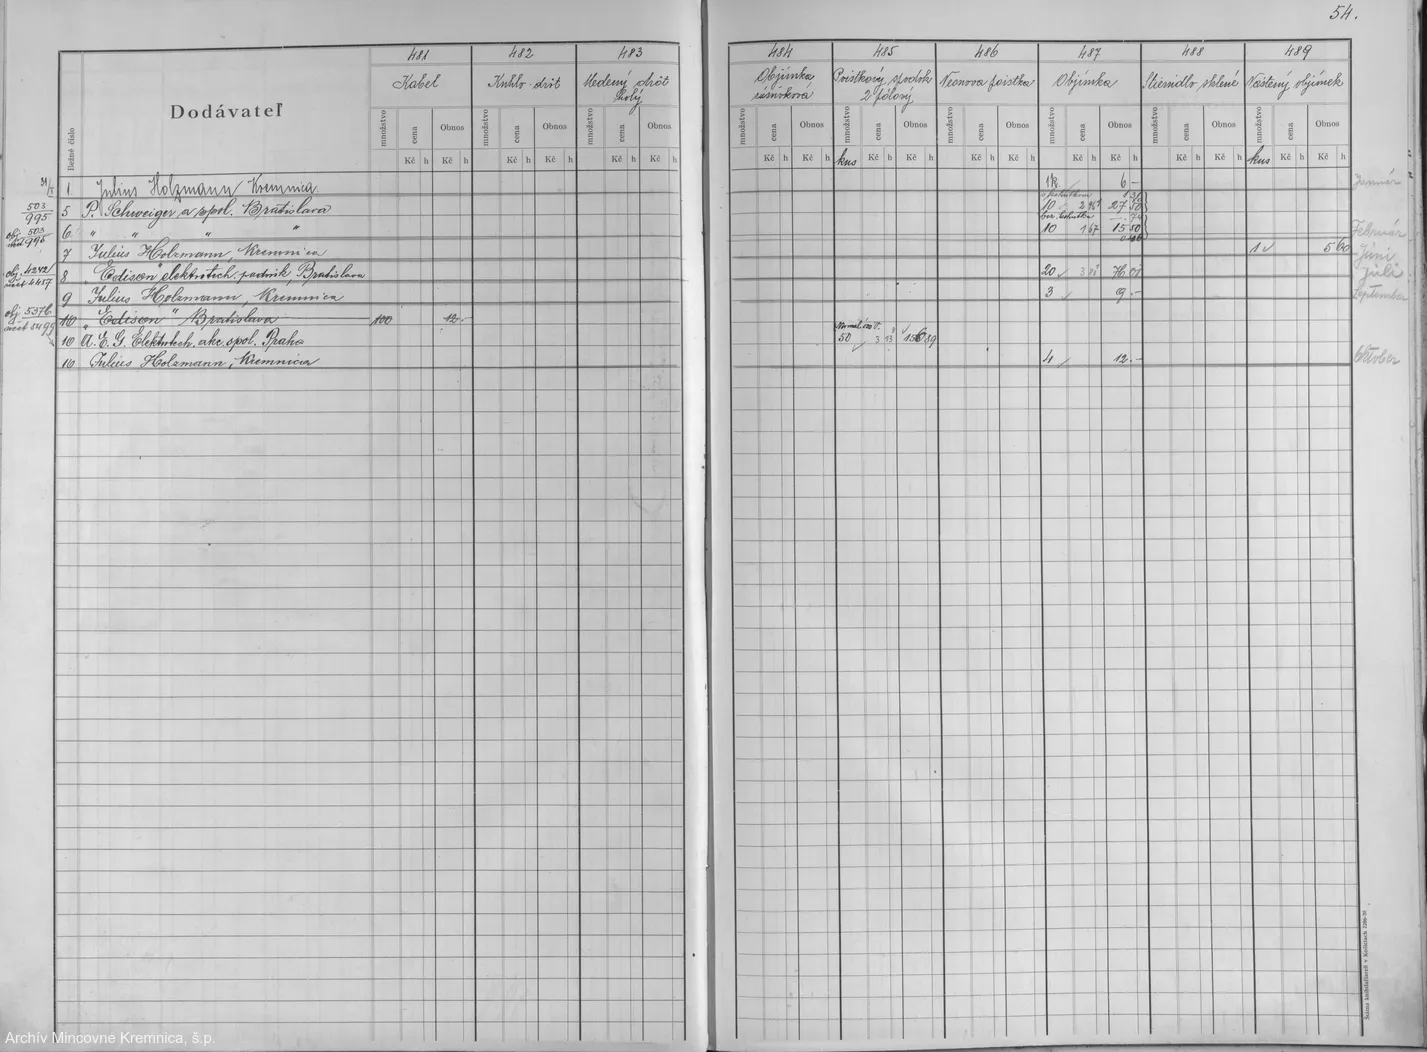 54.
481 482 483 484 485 486 487 488 489
Dodávateľ
Bežné číslo
Kabel
Kuhlo-drôt
Medený drôt
holý
Objímka
Poistkový spodok
2 pólový
Neonova poistka
Objímka
Stienidlo sklené
objímek
množstvo cena Obnos množstvo cena Obnos množstvo cena Obnos množstvo cena Obnos množstvo cena Obnos množstvo cena Obnos množstvo cena Obnos množstvo cena Obnos množstvo cena Obnos
Kč h Kč h Kč h Kč h Kč h Kč h Kč h Kč h kus Kč h Kč h Kč h Kč h Kč h Kč h Kč h Kč h kus Kč h Kč h
1. Julius Holzmann Kremnica 6 - Január
503/995 5 P. Schweiger a spol. Bratislava 10 27 50
obj. 503 995 6. " " " " 10 1 67 15 50 Február
7 Julius Holzmann, Kremnica 1 5 60 Júni
obj. 4242 4457 8 "Edison" elektrotech. podnik, Bratislava 20 Júli
9 Julius Holzmann, Kremnica 3 9.- September
obj. 5376 10 "Edison" Bratislava 100 12.-
10 A. E. G. Elektrotech. akc. spol. Praha 50 3 13 156 89
10 Julius Holzmann, Kremnica 4 12.- Október
Archív Mincovne Kremnica, š.p.